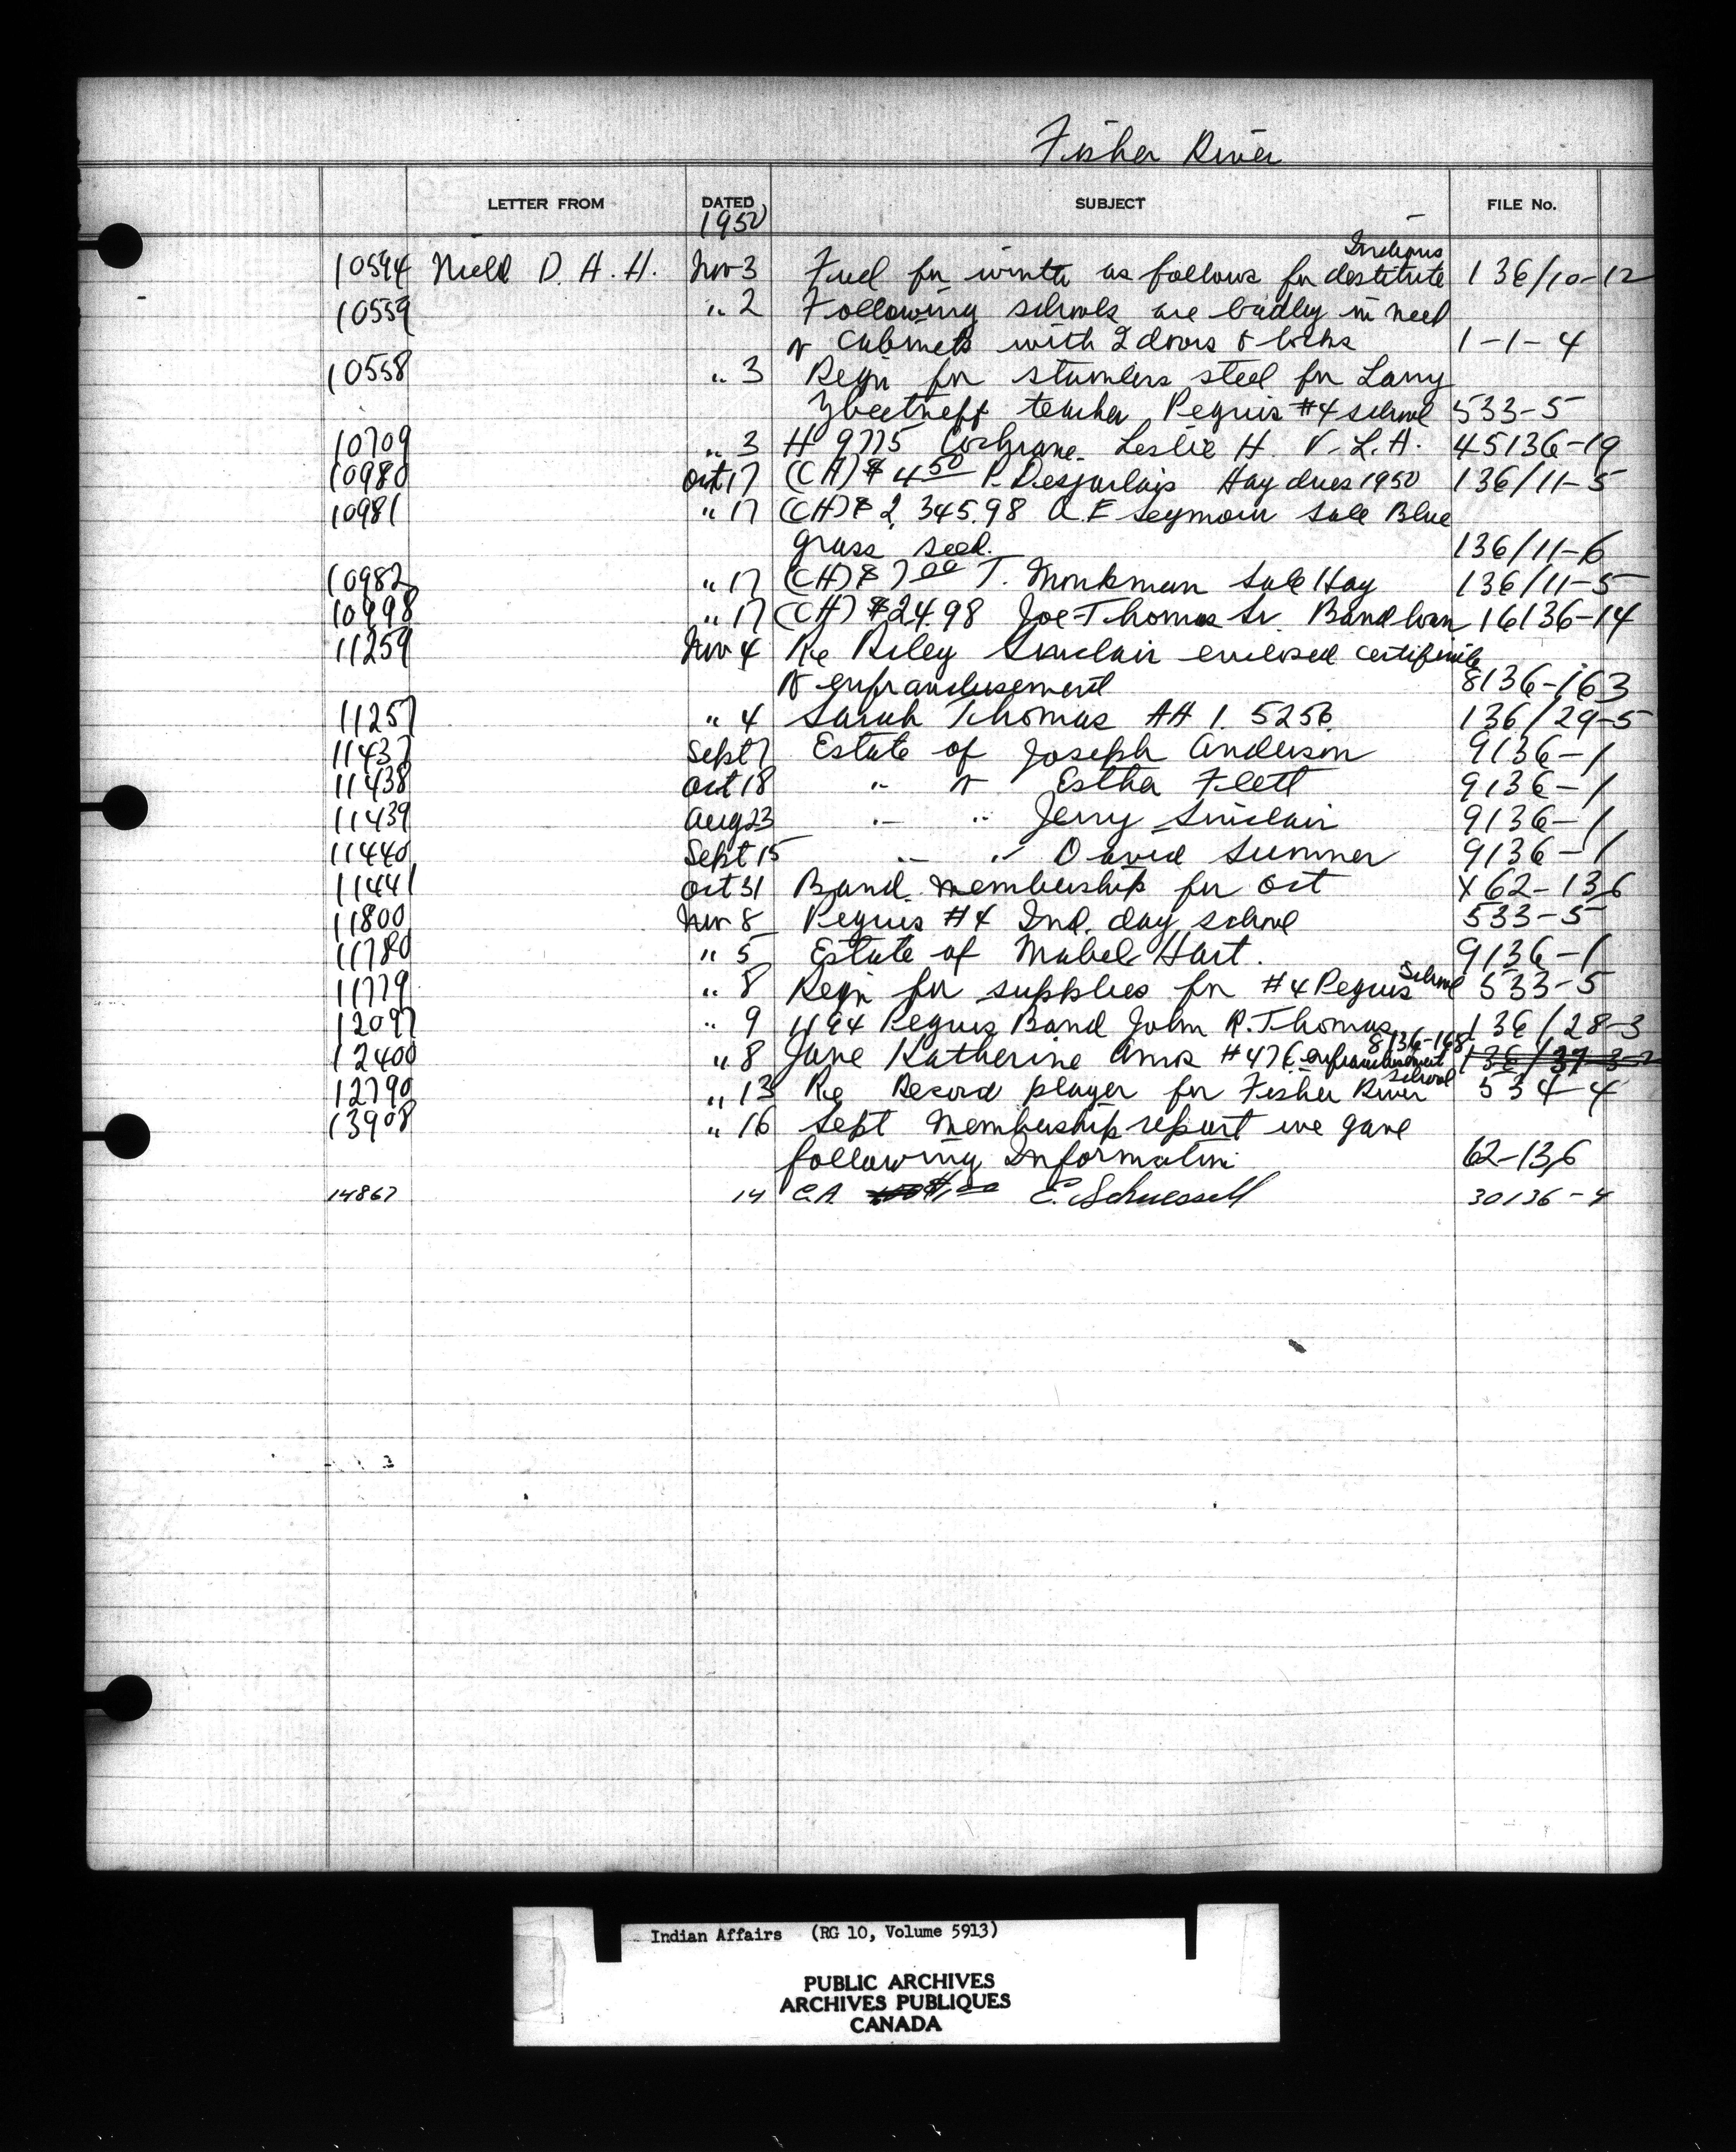 Fisher River
LETTER FROM DATED SUBJECT FILE No.
1950
Indians
10594 Nield D. H. H. Nov 3 Fuel for winter as follows for destitute 136/10-12
10559 " 2 Following schools are badly in need
of cabinets with 2 doors & locks 1-1-4
10558 " 3 Reqn for stainless steel for Larry
teacher Peguis #4 school 533-5
10709 " 3 H 9775 Cochrane Leslie H. V.L.A. 45136-19
10980 Oct 17 (CH) $4.50 P. Desjarlais Hay dues 1950 136/11-5
10981 " 17 (CH) $2,345.98 A.E Seymour Sale Blue
grass seed. 136/11-6
10982 " 17 (CH) $7.00 T. Monkman Sale Hay 136/11-5
10998 " 17 (CH) $24.98 Joe Thomas Sr. Band loan 16136-14
11259 Nov 4 Re Riley Sinclair enclosed certificate
of enfranchisement 8136-163
11257 " 4 Sarah Thomas AA 1. 5256 136/29-5
11437 Sept 7 Estate of Joseph Anderson 9136-1
11438 Oct 18 " of Esther Flett 9136-1
11439 Aug 23 " " Jerry Sinclair 9136-1
11440 Sept 15 " " David Sumner 9136-1
11441 Oct 31 Band membership for Oct X62-136
11800 Nov 8 Peguis #4 Ind. day school 533-5
11780 " 5 Estate of Mabel Hart. 9136-1
11779 " 8 Reqn for supplies for #4 Peguis School 533-5
12097 " 9 1194 Peguis Band John R. Thomas 136/28-3
8136-168
12400 " 8 Jane Katherine Amos #476 enfranchisement
12790 " 13 Re Record player for Fisher River School 534-4
13908 " 16 Sept Membership report we gave
following Information 62-136
14867 14 C.A $1.00 E. Schuessell 30136-4
Indian Affairs (RG 10, Volume 5913)
PUBLIC ARCHIVES
ARCHIVES PUBLIQUES
CANADA